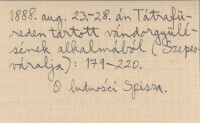 1888. aug. 23-28.-án Tátrafü-
reden tartott vándorgyülé-
sének alkalmából (Szepes-
váralja): 179-220.
O ludności Spisza.